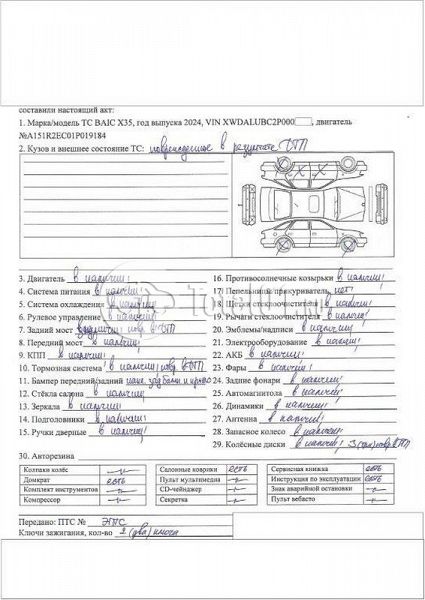 составили настоящий акт:
1. Марка/модель ТС BAIC X35, год выпуска 2024, VIN XWDALUBC2P000 , двигатель
№A151R2EC01P019184
2. Кузов и внешнее состояние ТС: повреждение в результате ДТП
3. Двигатель в наличии!
4. Система питания в наличии!
5. Система охлаждения в наличии!
6. Рулевое управление в наличии!
7. Задний мост в ДТП
8. Передний мост в наличии!
9. КПП в наличии!
10. Тормозная система в наличии! повр. в ДТП
11. Бампер передний/задний
12. Стёкла салона в наличии!
13. Зеркала в наличии!
14. Подголовники в наличии!
15. Ручки дверные в наличии!
16. Противосолнечные козырьки в наличии!
17. Пепельница, прикуриватель нет!
18. Щетки стеклоочистителя в наличии!
19. Рычаги стеклоочистителя в наличии!
20. Эмблемы/надписи в наличии!
21. Электрооборудование в наличии!
22. АКБ в наличии!
23. Фары в наличии!
24. Задние фонари в наличии!
25. Автомагнитола в наличии!
26. Динамики в наличии!
27. Антенна в наличии!
28. Запасное колесо в наличии!
29. Колёсные диски в наличии! 3 (три) повр. в ДТП
30. Авторезина
Колпаки колёс —
Домкрат есть
Комплект инструментов —
Компрессор —
Салонные коврики есть
Пульт мультимедиа —
CD-чейнджер —
Секретка —
Сервисная книжка есть
Инструкция по эксплуатации есть
Знак аварийной остановки —
Пульт вебасто —
Передано: ПТС № ЭПТС
Ключи зажигания, кол-во 2 (два) ключа